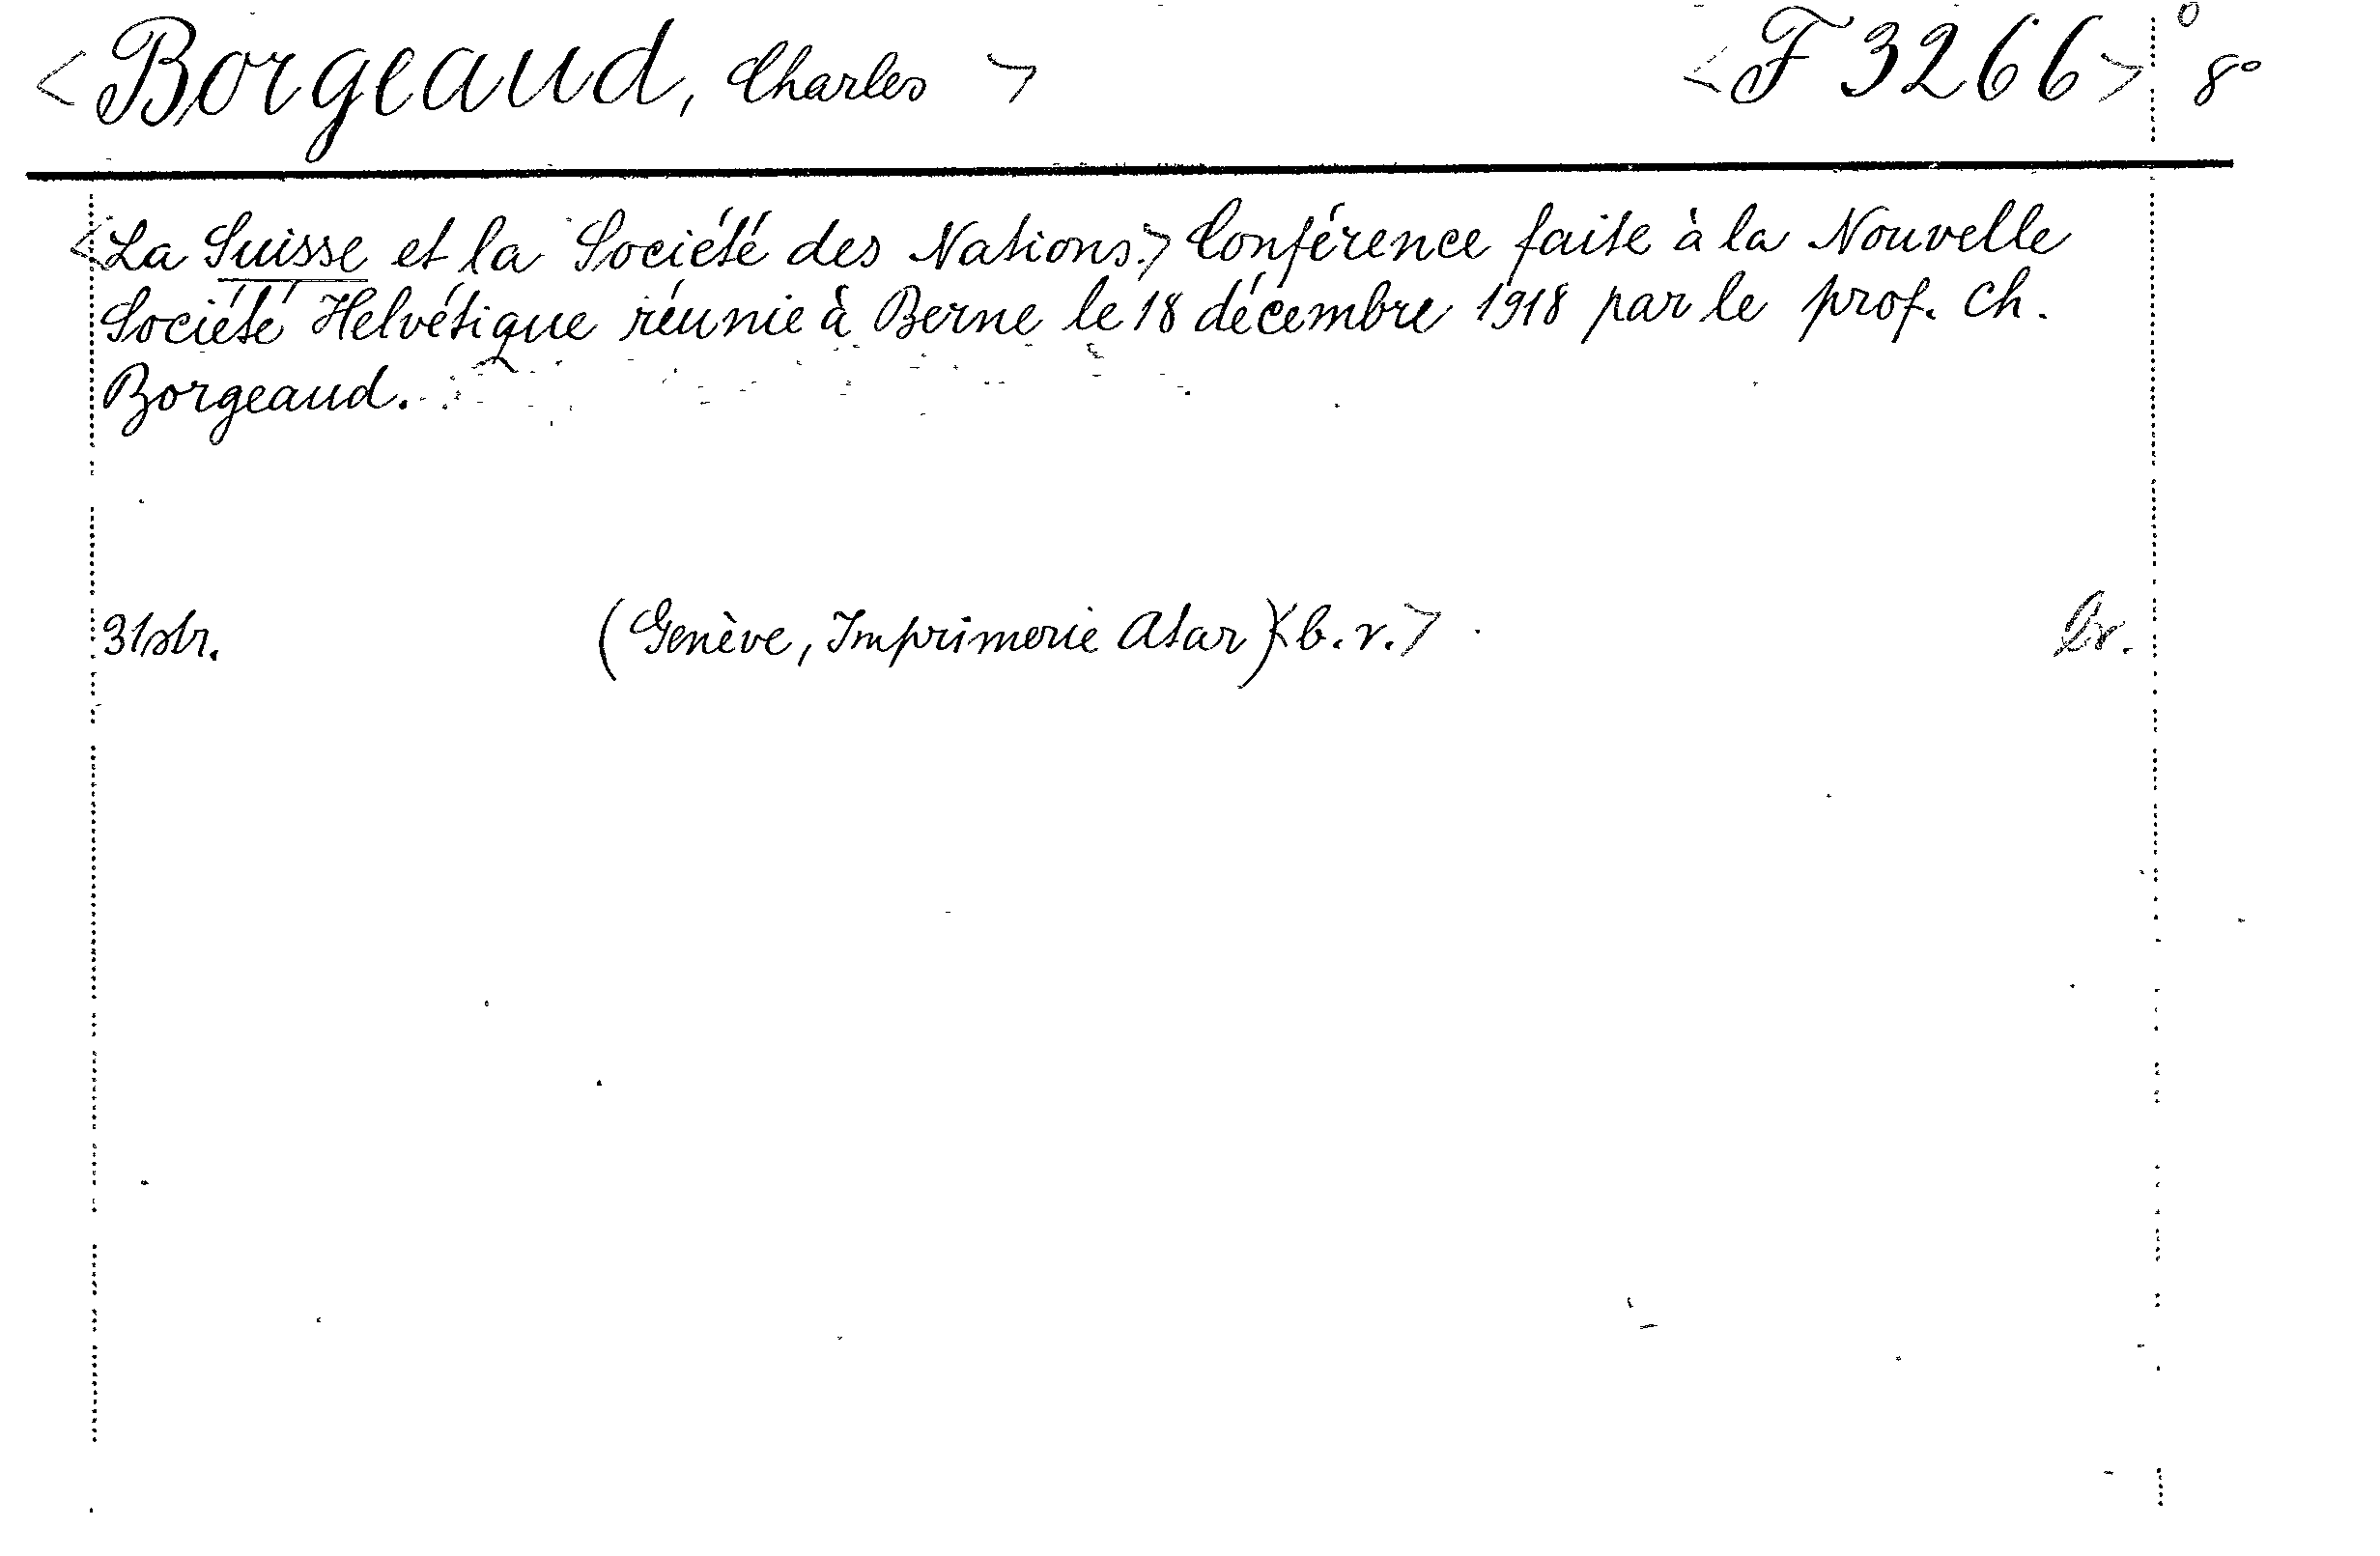 <Borgeaud, Charles> <F 3266> 8°
<La Suisse et la Société des Nations.> Conférence faite à la Nouvelle
Société Helvétique réunie à Berne le 18 décembre 1918 par le prof. Ch.
Borgeaud.
31 str. (Genève, Imprimerie Atar) <b.r.> br.